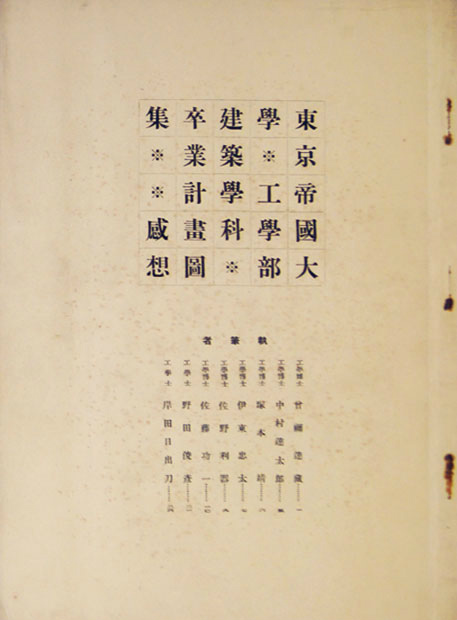 東京帝國大
學※工學部
建築學科※
卒業計畫圖
集※※感想
執筆者
工學博士 曾禰達藏
工學博士 中村達太郎
工學博士 塚本靖
工學博士 伊東忠太
工學博士 佐野利器
工學博士 佐藤功一
工學士 野田俊彥
工學士 岸田日出刀